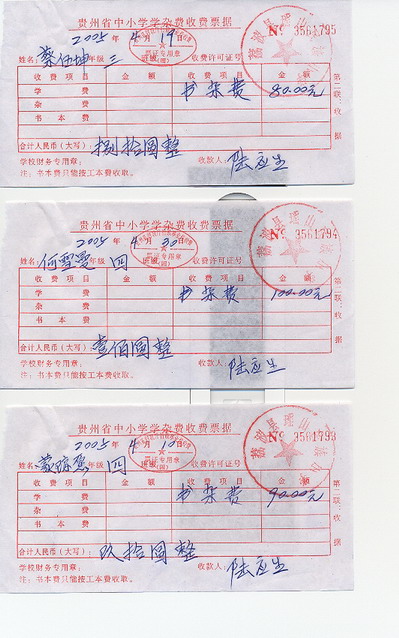 贵州省中小学学杂费收费票据
2005年4月19日
№ 3561795
姓名: 蔡 坤 年级 三 班级 收费许可证号
收费项目 金额 收费项目 金额
学费 书杂费 80.00元
杂费
书本费
合计人民币(大写): 捌拾圆整
学校财务专用章: 收款人: 陆应生
注: 书本费只能按工本费收取。
第二联:收据
贵州省中小学学杂费收费票据
2005年4月30日
№ 3561794
姓名: 何雪曼 年级 四 班级 收费许可证号
收费项目 金额 收费项目 金额
学费 书杂费 100.00元
杂费
书本费
合计人民币(大写): 壹佰圆整
学校财务专用章: 收款人: 陆应生
注: 书本费只能按工本费收取。
第二联:收据
贵州省中小学学杂费收费票据
2005年4月10日
№ 3561793
姓名: 蒙 年级 四 班级 收费许可证号
收费项目 金额 收费项目 金额
学费 书杂费 90.00元
杂费
书本费
合计人民币(大写): 玖拾圆整
学校财务专用章: 收款人: 陆应生
注: 书本费只能按工本费收取。
第二联:收据